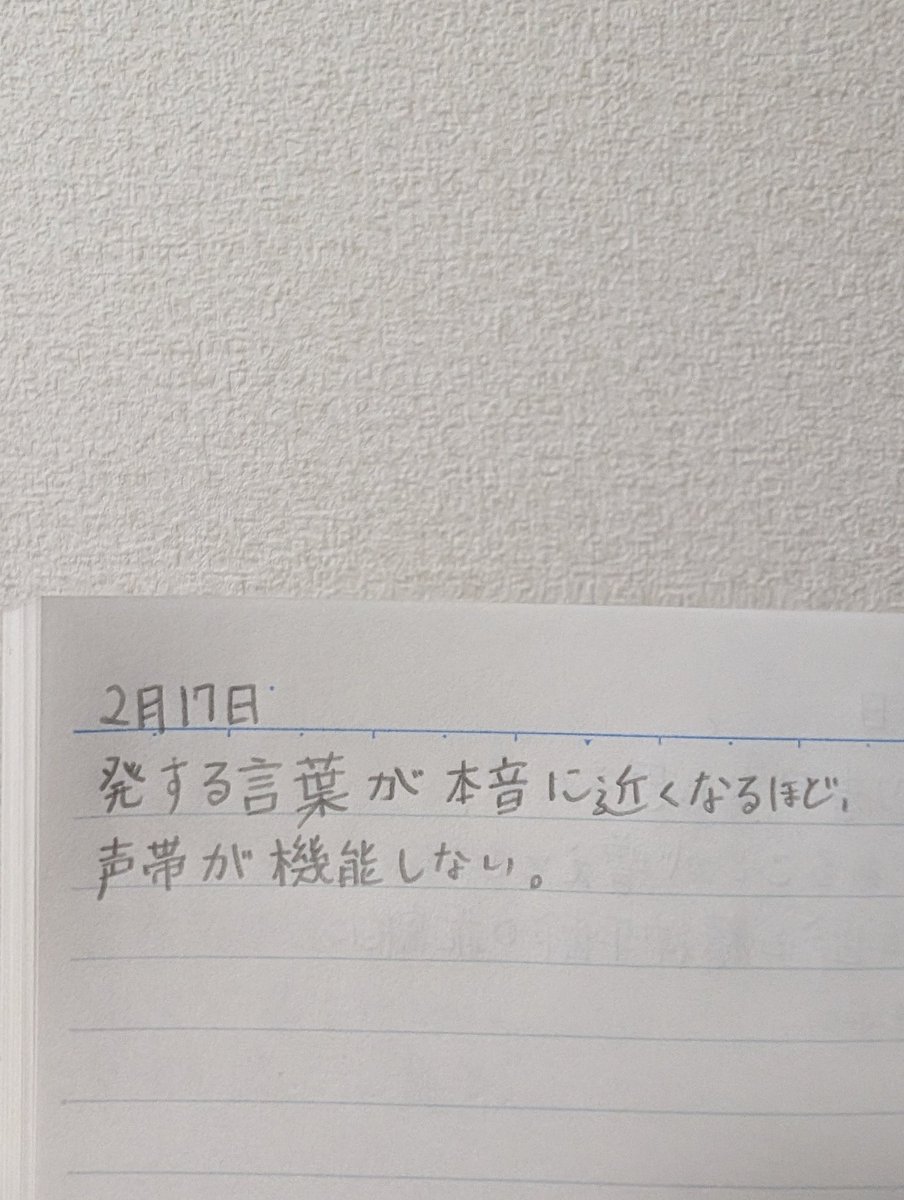 2月17日
発する言葉が本音に近くなるほど、
声帯が機能しない。